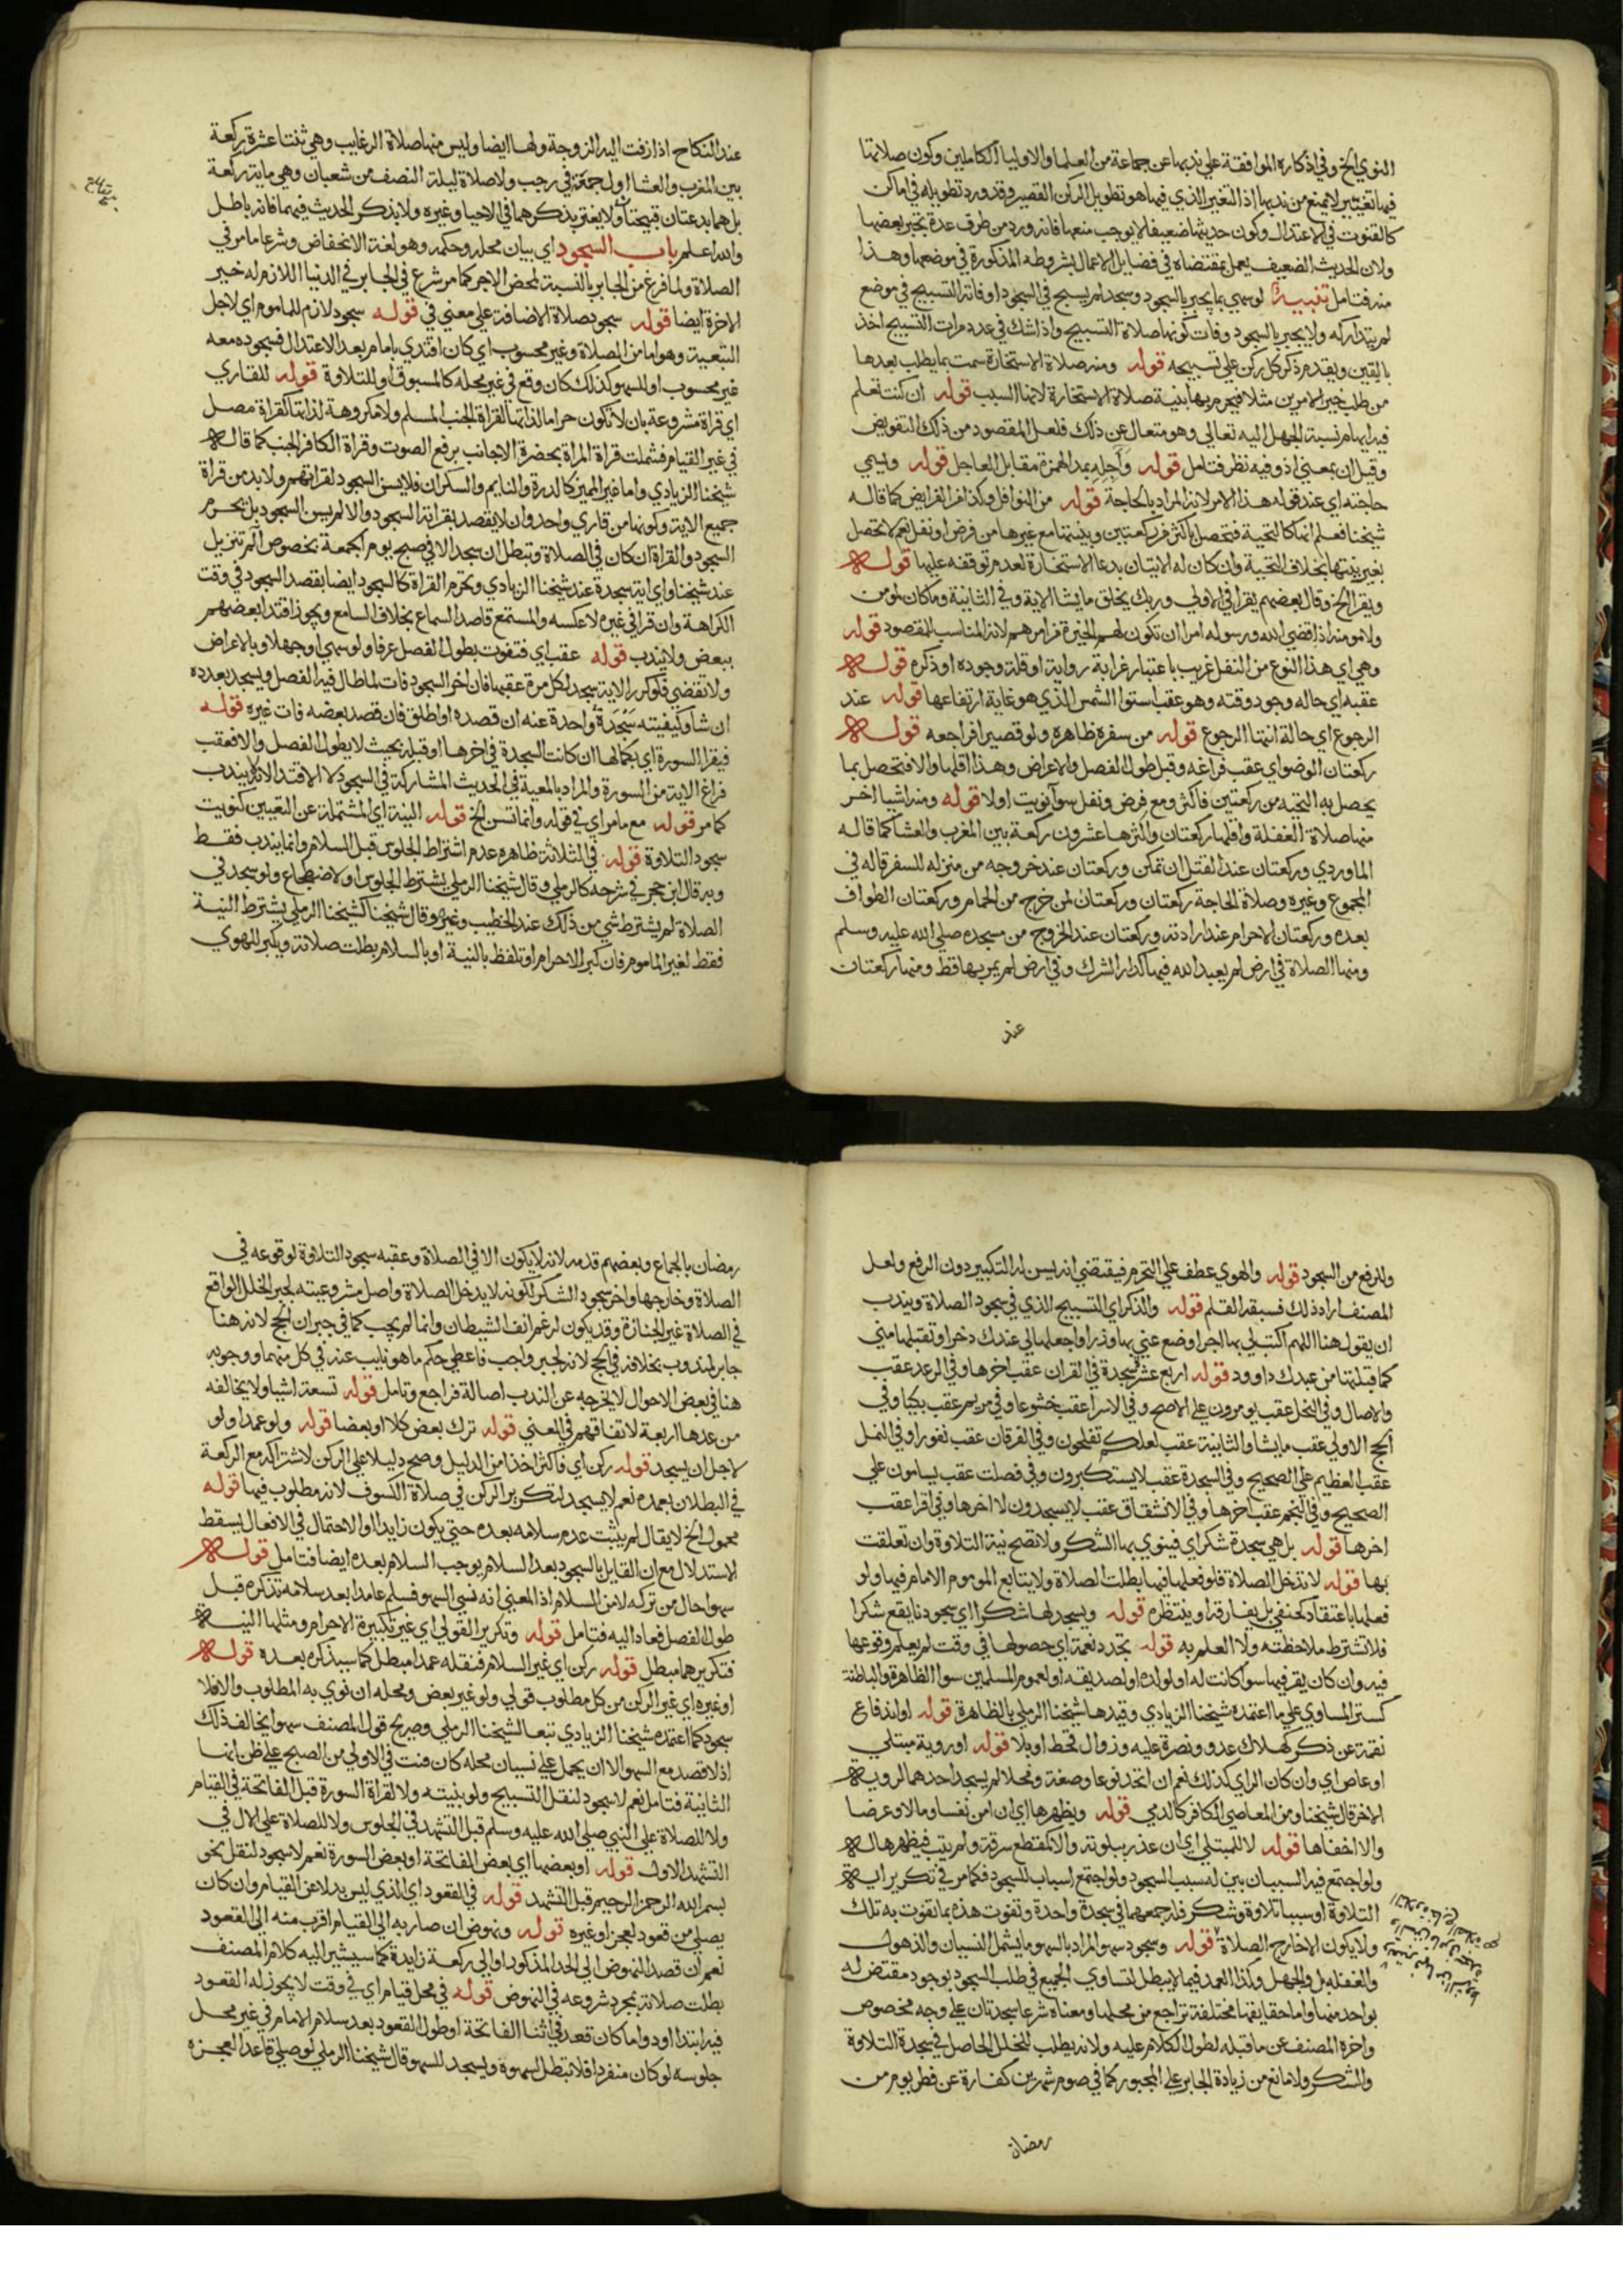 النووي الخ وفي اذكاره الموافقة علي ندبها عن جماعة من العلما والاوليا الكاملين وكون صلاتها
فيها تغيير لا يمنع من ندبها اذ التغيير الذي فيها هو تطويل الركن القصير وقد ورد تطويله في اماكن
كالقنوت في الاعتدال وكون حديثها ضعيفا لا يوجب منعها فانه ورد من طرق عدة يجبر بعضها
ولان الحديث الضعيف يعمل بمقتضاه في فضايل الاعمال بشروطه المذكورة في موضعها وهذا
منه فتامل تنبيه لو سهي بما يجبر بالسجود وسجد لم يسبح في السجود او فاته التسبيح في موضع
لم يتداركه ولا يجبر بالسجود وفات كونها صلاة التسبيح واذا شك في عدد مرات التسبيح اخذ
باليقين ويقدم ذكر كل ركن علي تسبيحه قوله ومنه صلاة الاستخارة سميت بما يطلب بعدها
من طلب خير الامرين مثلا فيحرم بها بنية صلاة الاستخارة لانها السبب قوله ان كنت تعلم
فيه ايهام نسبة الجهل اليه تعالي وهو متعال عن ذلك فلعل المقصود من ذلك التفويض
وقيل ان بمعني اذ وفيه نظر فتامل قوله وآجله بمد الهمزة مقابل العاجل قوله ويسمي
حاجته اي عند قوله هذا الامر لانه المراد بالحاجة قوله من النوافل وكذا من الفرايض كما قاله
شيخنا فعلم انها كالتحية فتحصل باكثر من ركعتين وبنيتها مع غيرها من فرض او نفل نعم لا تحصل
بغير نيتها بخلاف التحية وان كان له الاتيان بدعا الاستخارة لعدم توقفه عليها قوله
ويقرا الخ وقال بعضهم يقرا في الاولي وربك يخلق ما يشا الاية وفي الثانية وما كان لمومن
ولا مومنة اذا قضي الله ورسوله امرا ان تكون لهم الخيرة من امرهم لانه المناسب للمقصود قوله
وهي اي هذا النوع من النفل غريب باعتبار غرابة روايته او قلة وجوده او ذكره قوله
عقبه اي حاله وجود وقته وهو عقب استوا الشمس الذي هو غاية ارتفاعها قوله عند
الرجوع اي حالة انتها الرجوع قوله من سفره ظاهره ولو قصيرا فراجعه قوله
ركعتان الوضو اي عقب فراغه وقبل طول الفصل والاعراض وهذا اقلها والا فتحصل بما
يحصل به التحية من ركعتين فاكثر ومع فرض ونفل سوا نويت اولا قوله ومنه اشيا اخر
منها صلاة الغفلة واقلها ركعتان واكثرها عشرون ركعة بين المغرب والعشا كما قاله
الماوردي وركعتان عند القتل ان تمكن وركعتان عند خروجه من منزله للسفر قاله في
المجموع وغيره وصلاة الحاجة ركعتان وركعتان لمن خرج من الحمام وركعتان الطواف
بعده وركعتان الاحرام عند ارادته وركعتان عند الخروج من مسجده صلي الله عليه وسلم
ومنها الصلاة في ارض لم يعبد الله فيها كدار الشرك وفي ارض لم يمر بها قط ومنها ركعتان
عند
عند النكاح اذا زفت اليه الزوجة ولها ايضا وليس منها صلاة الرغايب وهي ثنتا عشرة ركعة
بين المغرب والعشا اول جمعة في رجب ولا صلاة ليلة النصف من شعبان وهي ماية ركعة
بل هما بدعتان قبيحتان ولا يغتر بذكرهما في الاحيا وغيره ولا بذكر الحديث فيهما فانه باطل
والله اعلم باب السجود اي بيان محله وحكمه وهو لغة الانخفاض وشرعا ما مر في
الصلاة ولما فرغ من الجابر بالنسبة لمحض الاجر كما مر شرع في الجابر في الدنيا اللازم له خير
الاخرة ايضا قوله سجود صلاة الاضافة علي معني في قوله سجود لازم للماموم اي لاجل
التبعية وهو اما من الصلاة وغير محسوب اي كان اقتدي بامام بعد الاعتدال فسجوده معه
غير محسوب او للسهو كذلك كان وقع في غير محله كالمسبوق او للتلاوة قوله للقاري
اي قراة مشروعة بان لا تكون حراما لذاتها كقراة الجنب المسلم ولا مكروهة لذاتها كقراة مصل
في غير القيام فشملت قراة المراة بحضرة الاجانب برفع الصوت وقراة الكافر الجنب كما قاله
شيخنا الزيادي واما غير المميز كالدرة والنايم والسكران فلا يسن السجود لقراتهم ولا بد من قراة
جميع الاية وكونها من قاري واحد وان لا يقصد بقراته السجود والا لم يسن السجود بل يحرم
السجود والقراة ان كان في الصلاة وتبطل ان سجد الا في صبح يوم الجمعة بخصوص الم تنزيل
عند شيخنا واي اية سجدة عند شيخنا الزيادي وتحرم القراة كالسجود ايضا بقصد السجود في وقت
الكراهة وان قرا في غيره لا عكسه والمستمع قاصد السماع بخلاف السامع ويجوز اقتدا بعضهم
ببعض ولا يندب قوله عقب اي فتفوت بطول الفصل عرفا ولو سهي او جهلا وبالاعراض
ولا تقضي فلو كرر الاية سجد لكل مرة عقبها فان اخر السجود فات لما طال فيه الفصل ويسجد بعدده
ان شا وكيفيته سجدة واحدة عنه ان قصده او اطلق فان قصد بعضه فات غيره قوله
فيقرا السورة اي بكمالها ان كانت السجدة في اخرها او قبله بحيث لا يطول الفصل والا فعقب
فراغ الاية من السورة والمراد بالمعية في الحديث المشاركة في السجود لا الاقتدا لانه لا يندب
كما مر قوله مع ما مر اي في قوله وانما تسن الخ قوله النية اي المشتملة عن التعيين كنويت
سجود التلاوة قوله في الثلاثة ظاهره عدم اشتراط الجلوس قبل السلام وانما يندب فقط
وبه قال ابن حجر في شرحه كالرملي وقال شيخنا الرملي يشترط الجلوس او الاضطجاع ولو سجد في
الصلاة لم يشترط شي من ذلك عند الخطيب وغيره وقال شيخنا كشيخنا الرملي يشترط النية
فقط لغير الماموم فان كبر للاحرام او تلفظ بالنية او بالسلام بطلت صلاته ويكبر للهوي
وللرفع من السجود قوله والهوي عطف علي التحرم فيقتضي انه يسن له التكبير دون الرفع ولعل
المصنف اراد ذلك فسبقه القلم قوله والذكر اي التسبيح الذي في سجود الصلاة ويندب
ان يقول هنا اللهم اكتب لي بها اجرا وضع عني بها وزرا واجعلها لي عندك ذخرا وتقبلها مني
كما قبلتها من عبدك داوود قوله اربع عشر سجدة في القران عقب اخرها وفي الرعد عقب
والاصال وفي النحل عقب يومرون علي الاصح وفي الاسرا عقب خشوعا وفي مريم عقب بكيا وفي
الحج الاولي عقب ما يشا والثانية عقب لعلكم تفلحون وفي الفرقان عقب نفورا وفي النمل
عقب العظيم علي الصحيح وفي السجدة عقب لا يستكبرون وفي فصلت عقب يسامون علي
الصحيح وفي النجم عقب اخرها وفي الانشقاق عقب لا يسجدون لا اخرها وفي اقرا عقب
اخرها قوله بل هي سجدة شكر اي فينوي بها الشكر ولا تصح نية التلاوة وان تعلقت
بها قوله لا تدخل الصلاة فلو فعلها فيها بطلت الصلاة ولا يتابع الموموم الامام فيها ولو
فعلها باعتقاد كحنفي بل يفارقه او ينتظره قوله ويسجد لها شكرا اي سجودنا يقع شكرا
فلا تشترط ملاحظته ولا العلم به قوله تجدد نعمة اي حصولها في وقت لم يعلم وقوعها
فيه وان كان يقر فيها سوا كانت له او لولده او لصديقه او لعموم المسلمين سوا الظاهرة والباطنة
كستر المساوي علي ما اعتمده شيخنا الزيادي وقيدها شيخنا الرملي بالظاهرة قوله او اندفاع
نقمة عن ذكر كهلاك عدو ونصرة عليه وزوال قحط او بلا قوله او روية مبتلي
او عاص اي وان كان الراي كذلك نعم ان اتحد نوعا وصفة ومحلا لم يسجد احدهما لروية
الاخر قال شيخنا ومن المعاصي الكافر كالذمي قوله ويظهرها اي ان امن نفسا وما لا وعرضا
والا اخفاها قوله لا للمبتلي اي ان عذر ببلوته والا كمقطع سرقة ولم يتب فيظهرها له
ولو اجتمع فيه السببان بين له سبب السجود ولو اجتمع اسباب للسجود فكما مر في تكرير اية
التلاوة او سببا تلاوة وشكر فله جمعهما في سجدة واحدة وتفوت هذه بما تفوت به تلك
ولا يكون الا خارج الصلاة قوله وسجود سهو المراد بالسهو ما يشمل النسيان والذهول
والغفلة بل والجهل وكذا العمد فيما لا يبطل لتساوي الجميع في طلب السجود بوجود مقتض له
بواحد منها واما حقايقها مختلفة تراجع من محلها ومعناه شرعا سجدتان علي وجه مخصوص
واخره المصنف عن ما قبله لطول الكلام عليه ولانه يطلب للخلل الحاصل في سجدة التلاوة
والشكر ولا مانع من زيادة الجابر علي المجبور كما في صوم شهرين كفارة عن فطر يوم من
رمضان
رمضان بالجماع وبعضهم قدمه لانه لا يكون الا في الصلاة وعقبه سجود التلاوة لوقوعه في
الصلاة وخارجها واخر سجود الشكر لكونه لا يدخل الصلاة واصل مشروعيته لجبر الخلل الواقع
في الصلاة غير الجنازة وقد يكون لرغم انف الشيطان وانما لم يجب كما في جبران الحج لانه هنا
جابر لمندوب بخلافه في الحج لانه لجبر واجب فاعطي حكم ما هو نايب عنه في كل منهما ووجوبه
هنا في بعض الاحوال لا يخرجه عن الندب اصالة فراجع وتامل قوله تسعة اشيا ولا يخالفه
من عدها اربعة لاتفاقهم في المعني قوله ترك بعض كلا او بعضا قوله ولو عمدا ولو
لاجل ان يسجد قوله ركن اي فاكثر اخذا من الدليل وصح دليلا علي الركن لاشتراكه مع الركعة
في البطلان بعمده نعم لا يسجد لتكرير الركن في صلاة الكسوف لانه مطلوب فيها قوله
محمول الخ لا يقال لم يثبت عدم سلامه بعده حتي يكون زايدا او الاحتمال في الافعال يسقط
الاستدلال مع ان القايل بالسجود بعد السلام يوجب السلام بعده ايضا فتامل قوله
سهوا حال من تركه لا من السلام اذ المعني انه نسي السهو فسلم عامدا بعد سلامه تذكره قبل
طول الفصل فعاد اليه فتامل قوله وتكرير القولي اي غير تكبيرة الاحرام ومثلها النية
فتكريرهما مبطل قوله ركن اي غير السلام فنقله عمدا مبطل كما سيذكره بعده قوله
او غيره اي غير الركن من كل مطلوب قولي ولو غير بعض ومحله ان نوي به المطلوب والا فلا
سجود كما اعتمده شيخنا الزيادي تبعا لشيخنا الرملي وصريح قول المصنف سهوا يخالف ذلك
اذ لا قصد مع السهو الا ان يحمل علي نسيان محله كان قنت في الاولي من الصبح علي ظن انها
الثانية فتامل نعم لا سجود لنقل التسبيح ولو بنيته ولا لقراة السورة قبل الفاتحة في القيام
ولا للصلاة علي النبي صلي الله عليه وسلم قبل التشهد في الجلوس ولا للصلاة علي الال في
التشهد الاول قوله او بعضها اي بعض الفاتحة او بعض السورة نعم لا سجود لنقل نحو
بسم الله الرحمن الرحيم قبل التشهد قوله في القعود اي الذي ليس بدلا عن القيام وان كان
يصلي من قعود لعجز او غيره قوله ونهوض ان صار به الي القيام اقرب منه الي القعود
نعم ان قصد النهوض الي الحد المذكور او الي ركعة زايدة كما سيشير اليه كلام المصنف
بطلت صلاته بمجرد شروعه في النهوض قوله في محل قيام اي في وقت لا يجوز له القعود
فيه ابتدا او دواما كان قعد في اثنا الفاتحة او طول القعود بعد سلام الامام في غير محل
جلوسه لو كان منفردا فلا تبطل لسهوه ويسجد للسهو قال شيخنا الرملي لو صلي قاعدا لعجزه